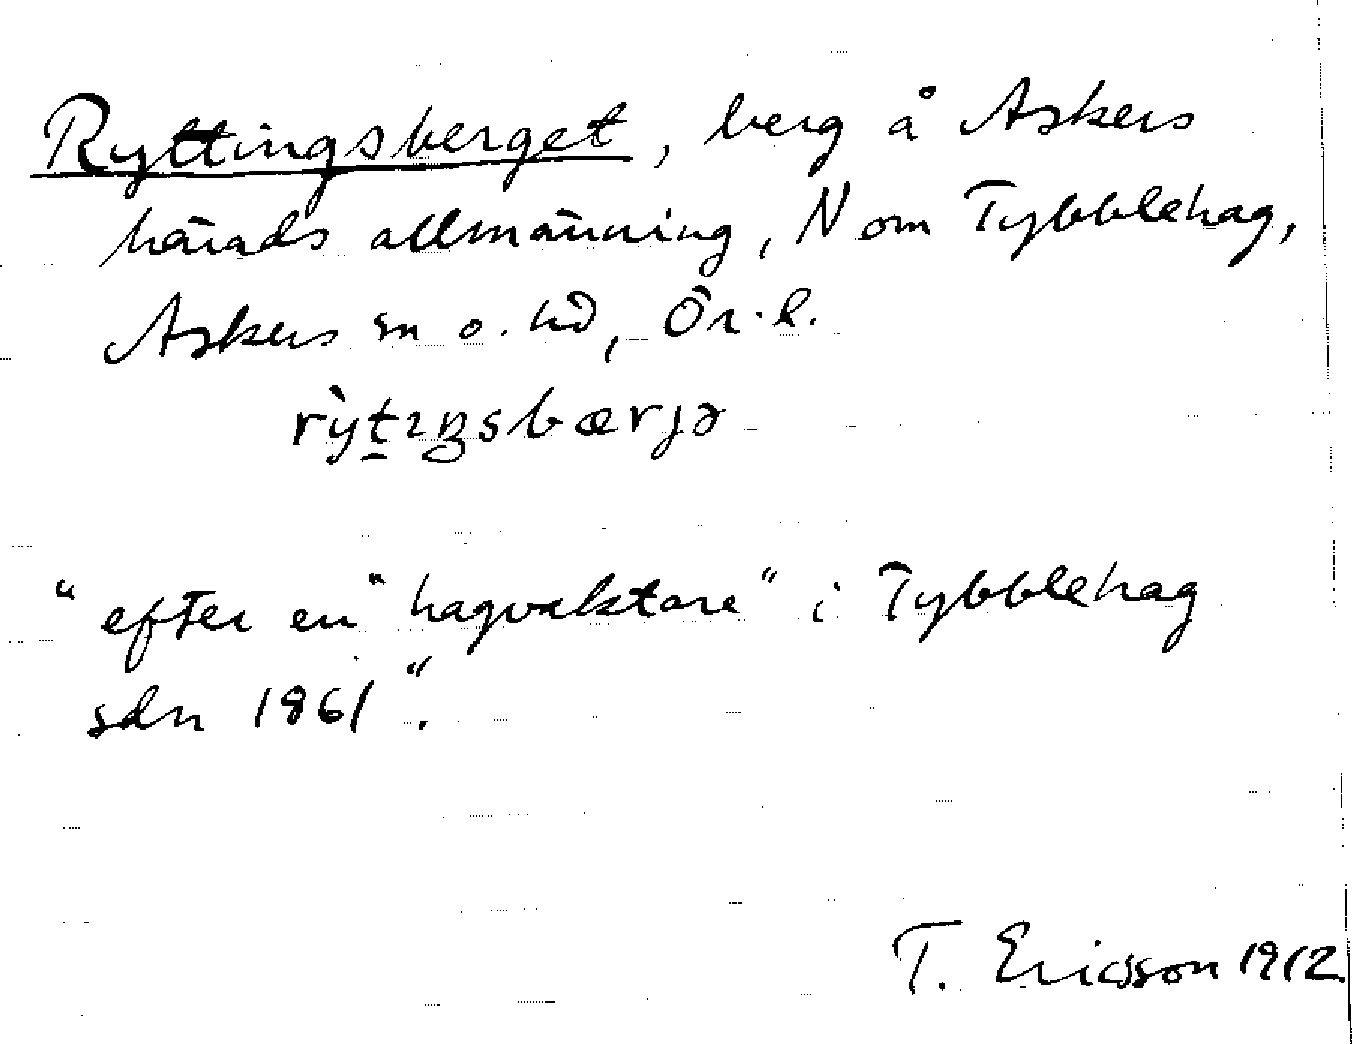 Ryttingsberget, berg å Askers
härads allmänning, N om Tybblehag,
Askers sn o. hd, Ör. l.
rỳt̲ɪŋsbærjə
"efter en "hagvaktare" i Tybblehag
sdn 1861".
T. Ericsson 1912